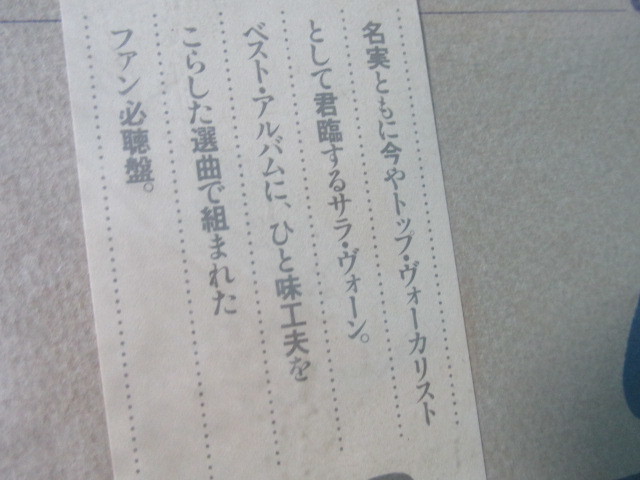 名実ともに今やトップ・ヴォーカリスト
として君臨するサラ・ヴォーン。
ベスト・アルバムに、ひと味工夫を
こらした選曲で組まれた
ファン必聴盤。